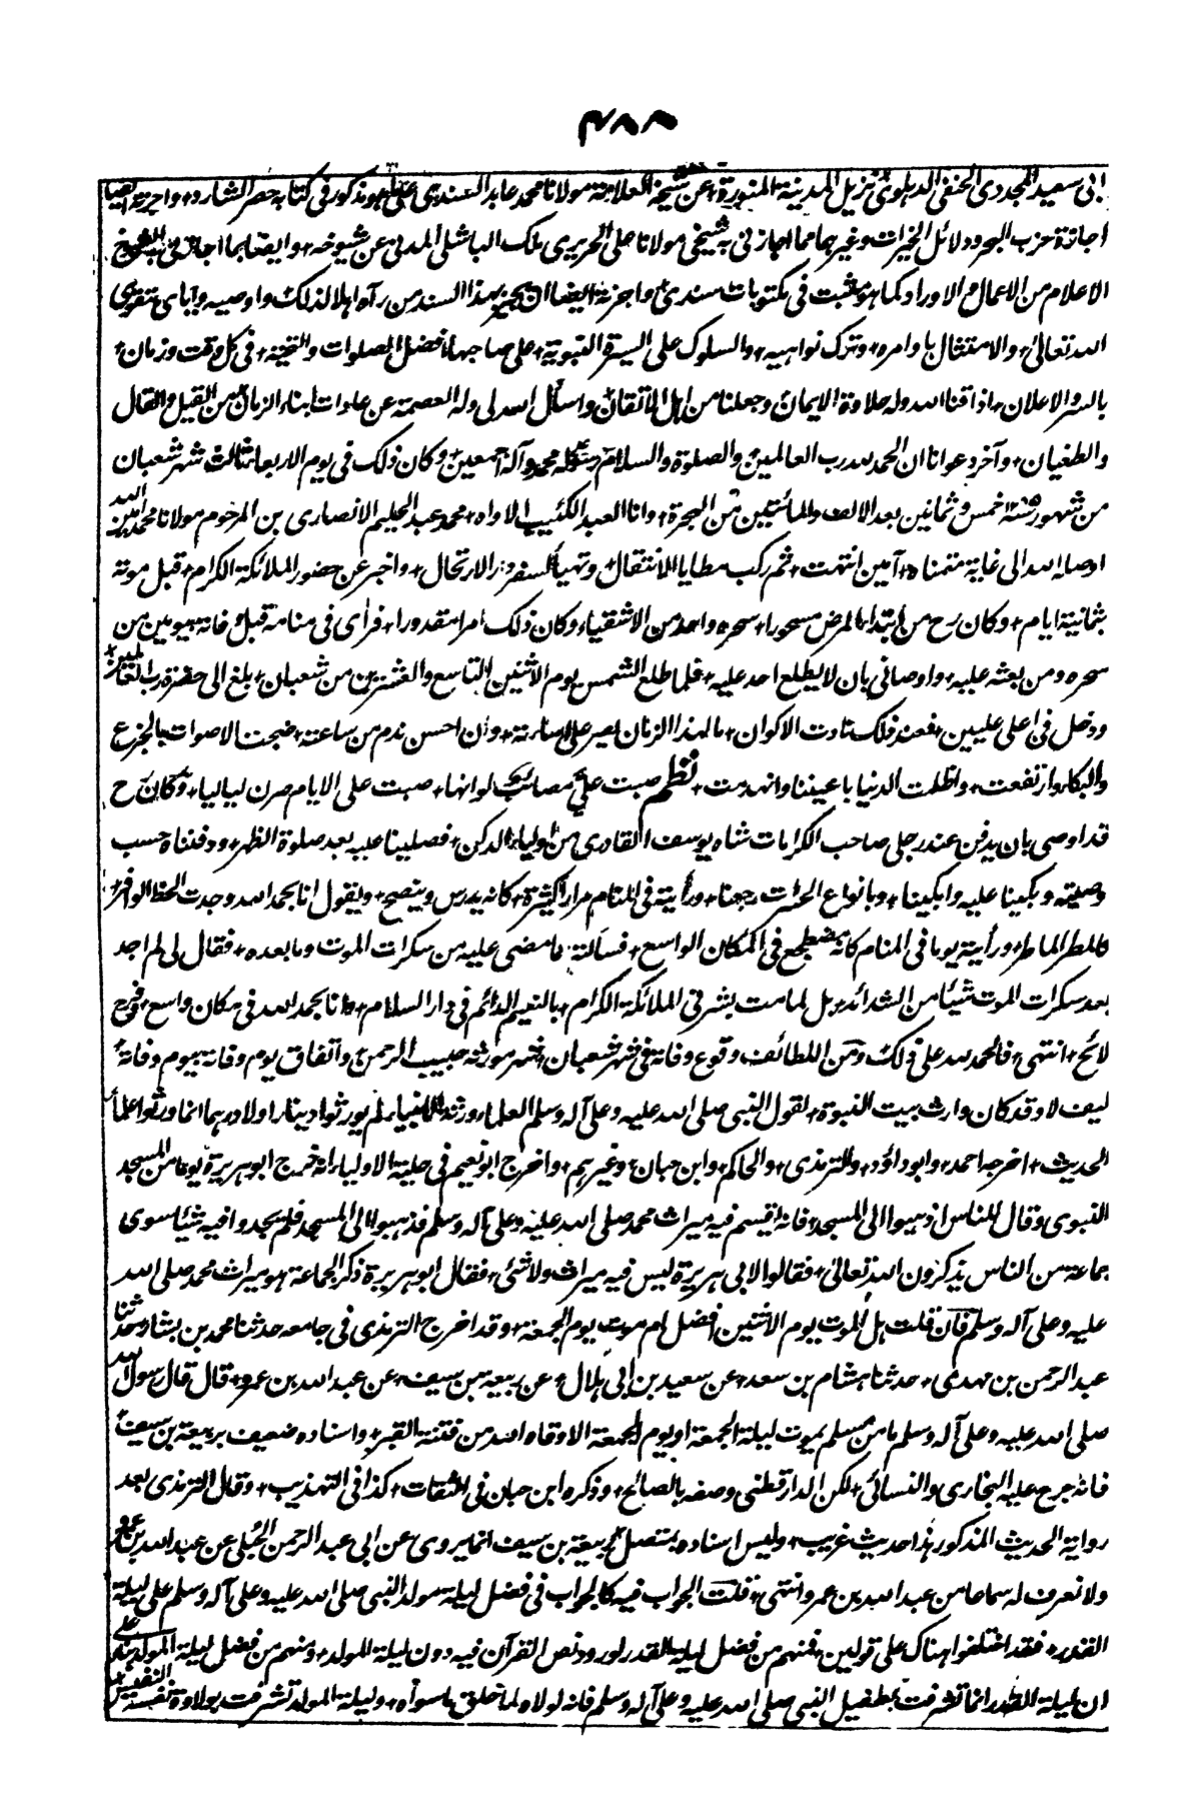 ۴۸۸
ابى سعيد المجددى الحنفى الدہلوى نزيل المدينة المنورة عن شيخه العلامة مولانا محمد عابد السندى على ما هو مذكور فى كتابه حصر الشارد واجزته ايضا
اجازة حزب البحر ودلائل الخيرات وغيرهما مما اجازنى به شيخى مولانا على الحريرى ملك الباشلى المدنى عن شيوخه، وايضا بما اجازنى به الشيوخ
الاعلام من الاعمال والاوراد كما هو مثبت فى مكتوبات سندى واجزته ايضا ان يجيز بهذا السند من رآه اهلا لذلك واوصيه واياى بتقوى
الله تعالى، والامتثال باوامره، وترك نواهيه، والسلوك على السيرة النبوية، على صاحبها افضل الصلوات والتحية، فى كل وقت وزمان
بالسر والاعلان، اذاقنا الله وله حلاوة الايمان وجعلنا من اهل الاتقان واسأل الله لى وله العصمة عن عادات ابناء الزمان من القيل والقال
والطغيان، وآخر دعوانا ان الحمد لله رب العالمين والصلوة والسلام على رسوله محمد وآله اجمعين وكان ذلك فى يوم الاربعاء ثالث شهر شعبان
من شهور سنة خمس وثمانين بعد الالف والمأئتين من الهجرة، وانا العبد الكئيب الاواه، محمد عبد الحليم الانصارى بن المرحوم مولانا محمد امين الله
اوصله الله الى غاية متمناه، آمين انتهت، ثم ركب مطايا الانتقال وتهيأ لسفر دار الارتحال، واخبر عن حضور الملائكة الكرام، قبل موته
بثمانية ايام، وكان رح من ابتداء المرض مسحورا، سحره واحد من الاشقياء وكان ذلك امرا مقدورا، فرأى فى منامه قبل وفاته بيومين من
سحره ومن بعثه عليه، واوصانى بان لا يطلع احد عليه، فلما طلع الشمس يوم الاثنين التاسع والعشرين من شعبان، بلغ الى حضرة رب العالمين
ودخل فى اعلى عليين، فعند ذلك نادت الاكوان، ما لهذا الزمان يصر على اساءته، وان احسن ندم من ساعته، ضجت الاصوات بالجزع
والبكاء وارتفعت، واظلمت الدنيا باعيننا وانهدمت، نظم صبت علىّ مصائب لو انها، صبت على الايام صرن لياليا، وكان رح
قد اوصى بان يدفن عند رجلى صاحب الكرامات شاه يوسف القادرى من اولياء الدكن، فصلينا عليه بعد صلوة الظهر، ودفناه حسب
وصيته وبكينا عليه وابكينا، وبانواع الحسرات رجعنا، ورأيته فى المنام مرارا كثيرة، كانه يدرس وينصح، ويقول انا بحمد الله وجدت الحظ الوافر
كالمطر الماطر، ورأيته يوما فى المنام كانه مضطجع فى المكان الواسع، فسألته ما مضى عليه من سكرات الموت وما بعده، فقال لى لم اجد
بعد سكرات الموت شيئا من الشدائد، بل لما مت بشرتنى الملائكة الكرام، بالنعيم الدائم فى دار السلام، وانا بحمد الله فى مكان واسع، وفرح
لائح، انتهى، فالحمد لله على ذلك ومن اللطائف وقوع وفاته فى شهر شعبان، شهر مورثه حبيب الرحمن، واتفاق يوم وفاته بيوم وفاته
كيف لا وقد كان وارث بيت النبوة، لقول النبى صلى الله عليه وعلى آله وسلم العلماء ورثة الانبياء لم يورثوا دينارا ولا درهما انما ورثوا علما
الحديث، اخرجه احمد، وابو داؤد، والترمذى، والحاكم، وابن حبان، وغيرهم، واخرج ابو نعيم فى حلية الاولياء انه خرج ابو هريرة يوما من المسجد
النبوى وقال للناس اذهبوا الى المسجد، فانه يقسم فيه ميراث محمد صلى الله عليه وعلى آله وسلم فذهبوا الى المسجد فلم يجدوا فيه شيئا سوى
جماعة من الناس يذكرون الله تعالى، فقالوا لابى هريرة ليس فيه ميراث ولا شئ، فقال ابو هريرة ذكر الجماعة هو ميراث محمد صلى الله
عليه وعلى آله وسلم فان قلت هل الموت يوم الاثنين افضل ام موت يوم الجمعة، وقد اخرج الترمذى فى جامعه حدثنا محمد بن بشار وحدثنا
عبد الرحمن بن مهدى، حدثنا هشام بن سعد، عن سعيد بن ابى هلال، عن ربيعة بن سيف، عن عبد الله بن عمرو، قال قال رسول الله
صلى الله عليه وعلى آله وسلم ما من مسلم يموت ليلة الجمعة او يوم الجمعة الا وقاه الله من فتنة القبر، واسناده ضعيف بربيعة بن سيف
فانه جرح عليه البخارى والنسائى، لكن الدارقطنى وصفه بالصالح، وذكره ابن حبان فى الثقات، كذا فى التهذيب، وقال الترمذى بعد
رواية الحديث المذكور هذا حديث غريب، وليس اسناده بمتصل ربيعة بن سيف انما يروى عن ابى عبد الرحمن الحُبلى عن عبد الله بن عمرو
ولا نعرف له سماعا من عبد الله بن عمرو انتهى، قلت الجواب فيه كالجواب فى فضل ليلة مولد النبى صلى الله عليه وعلى آله وسلم على ليلة
القدر، فقد اختلفوا هناك على قولين، فمنهم من فضل ليلة القدر لورود نص القرآن فيه دون ليلة المولد، ومنهم من فضل ليلة المولد بناء على
ان ليلة القدر انما تشرفت بطفيل النبى صلى الله عليه وعلى آله وسلم فانه لولاه لما خلق ما سواه، وليلة المولد تشرفت بولادة نفسه النفيس